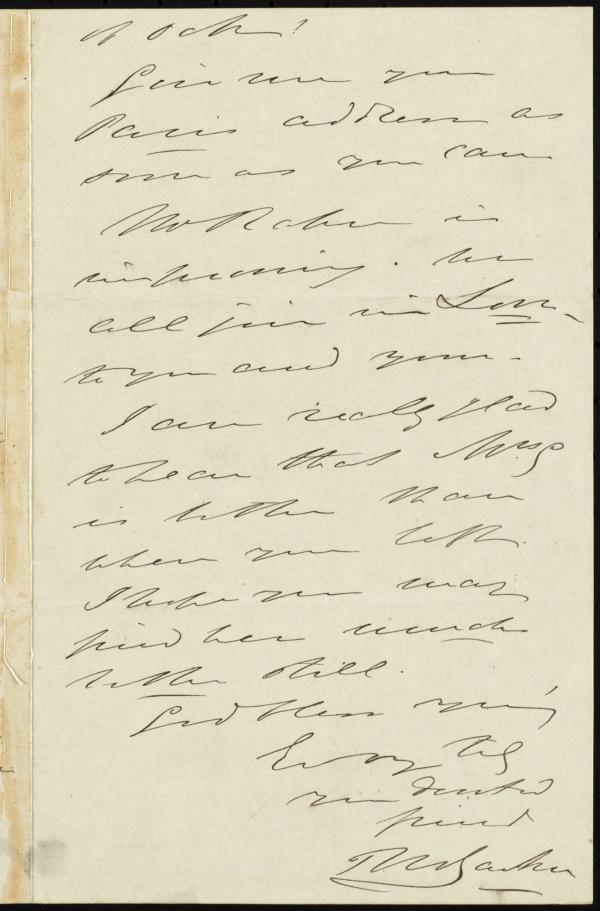 Give me your
Paris address as
soon as you can
is
improving. We
all join in Love
to you and yours.
I am really glad
to hear that Mrs G
is better than
when you left.
I hope you may
find her much
better still.
God bless you,
Ever
your devoted
friend